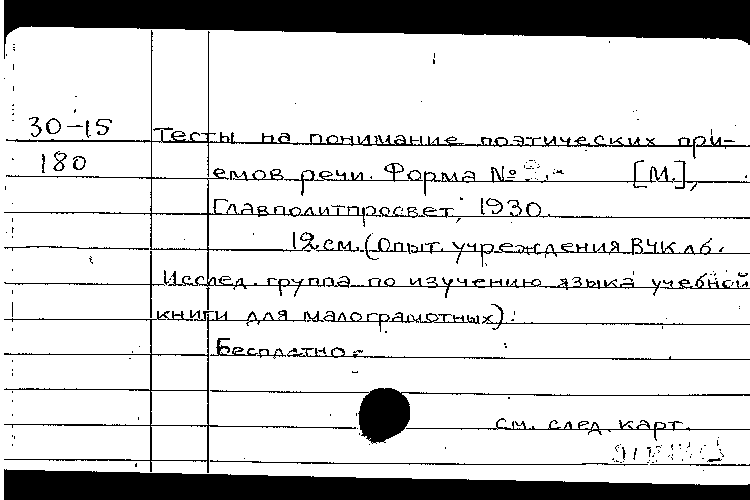 30-15
180
Тесты на понимание поэтических при-
емов речи. Форма № 2.- [М.],
Главполитпросвет, 1930.
12 см. (Опыт. учреждения ВЧК лб.
Исслед. группа по изучению языка учебной
книги для малограмотных).
Бесплатно.
см. след. карт.